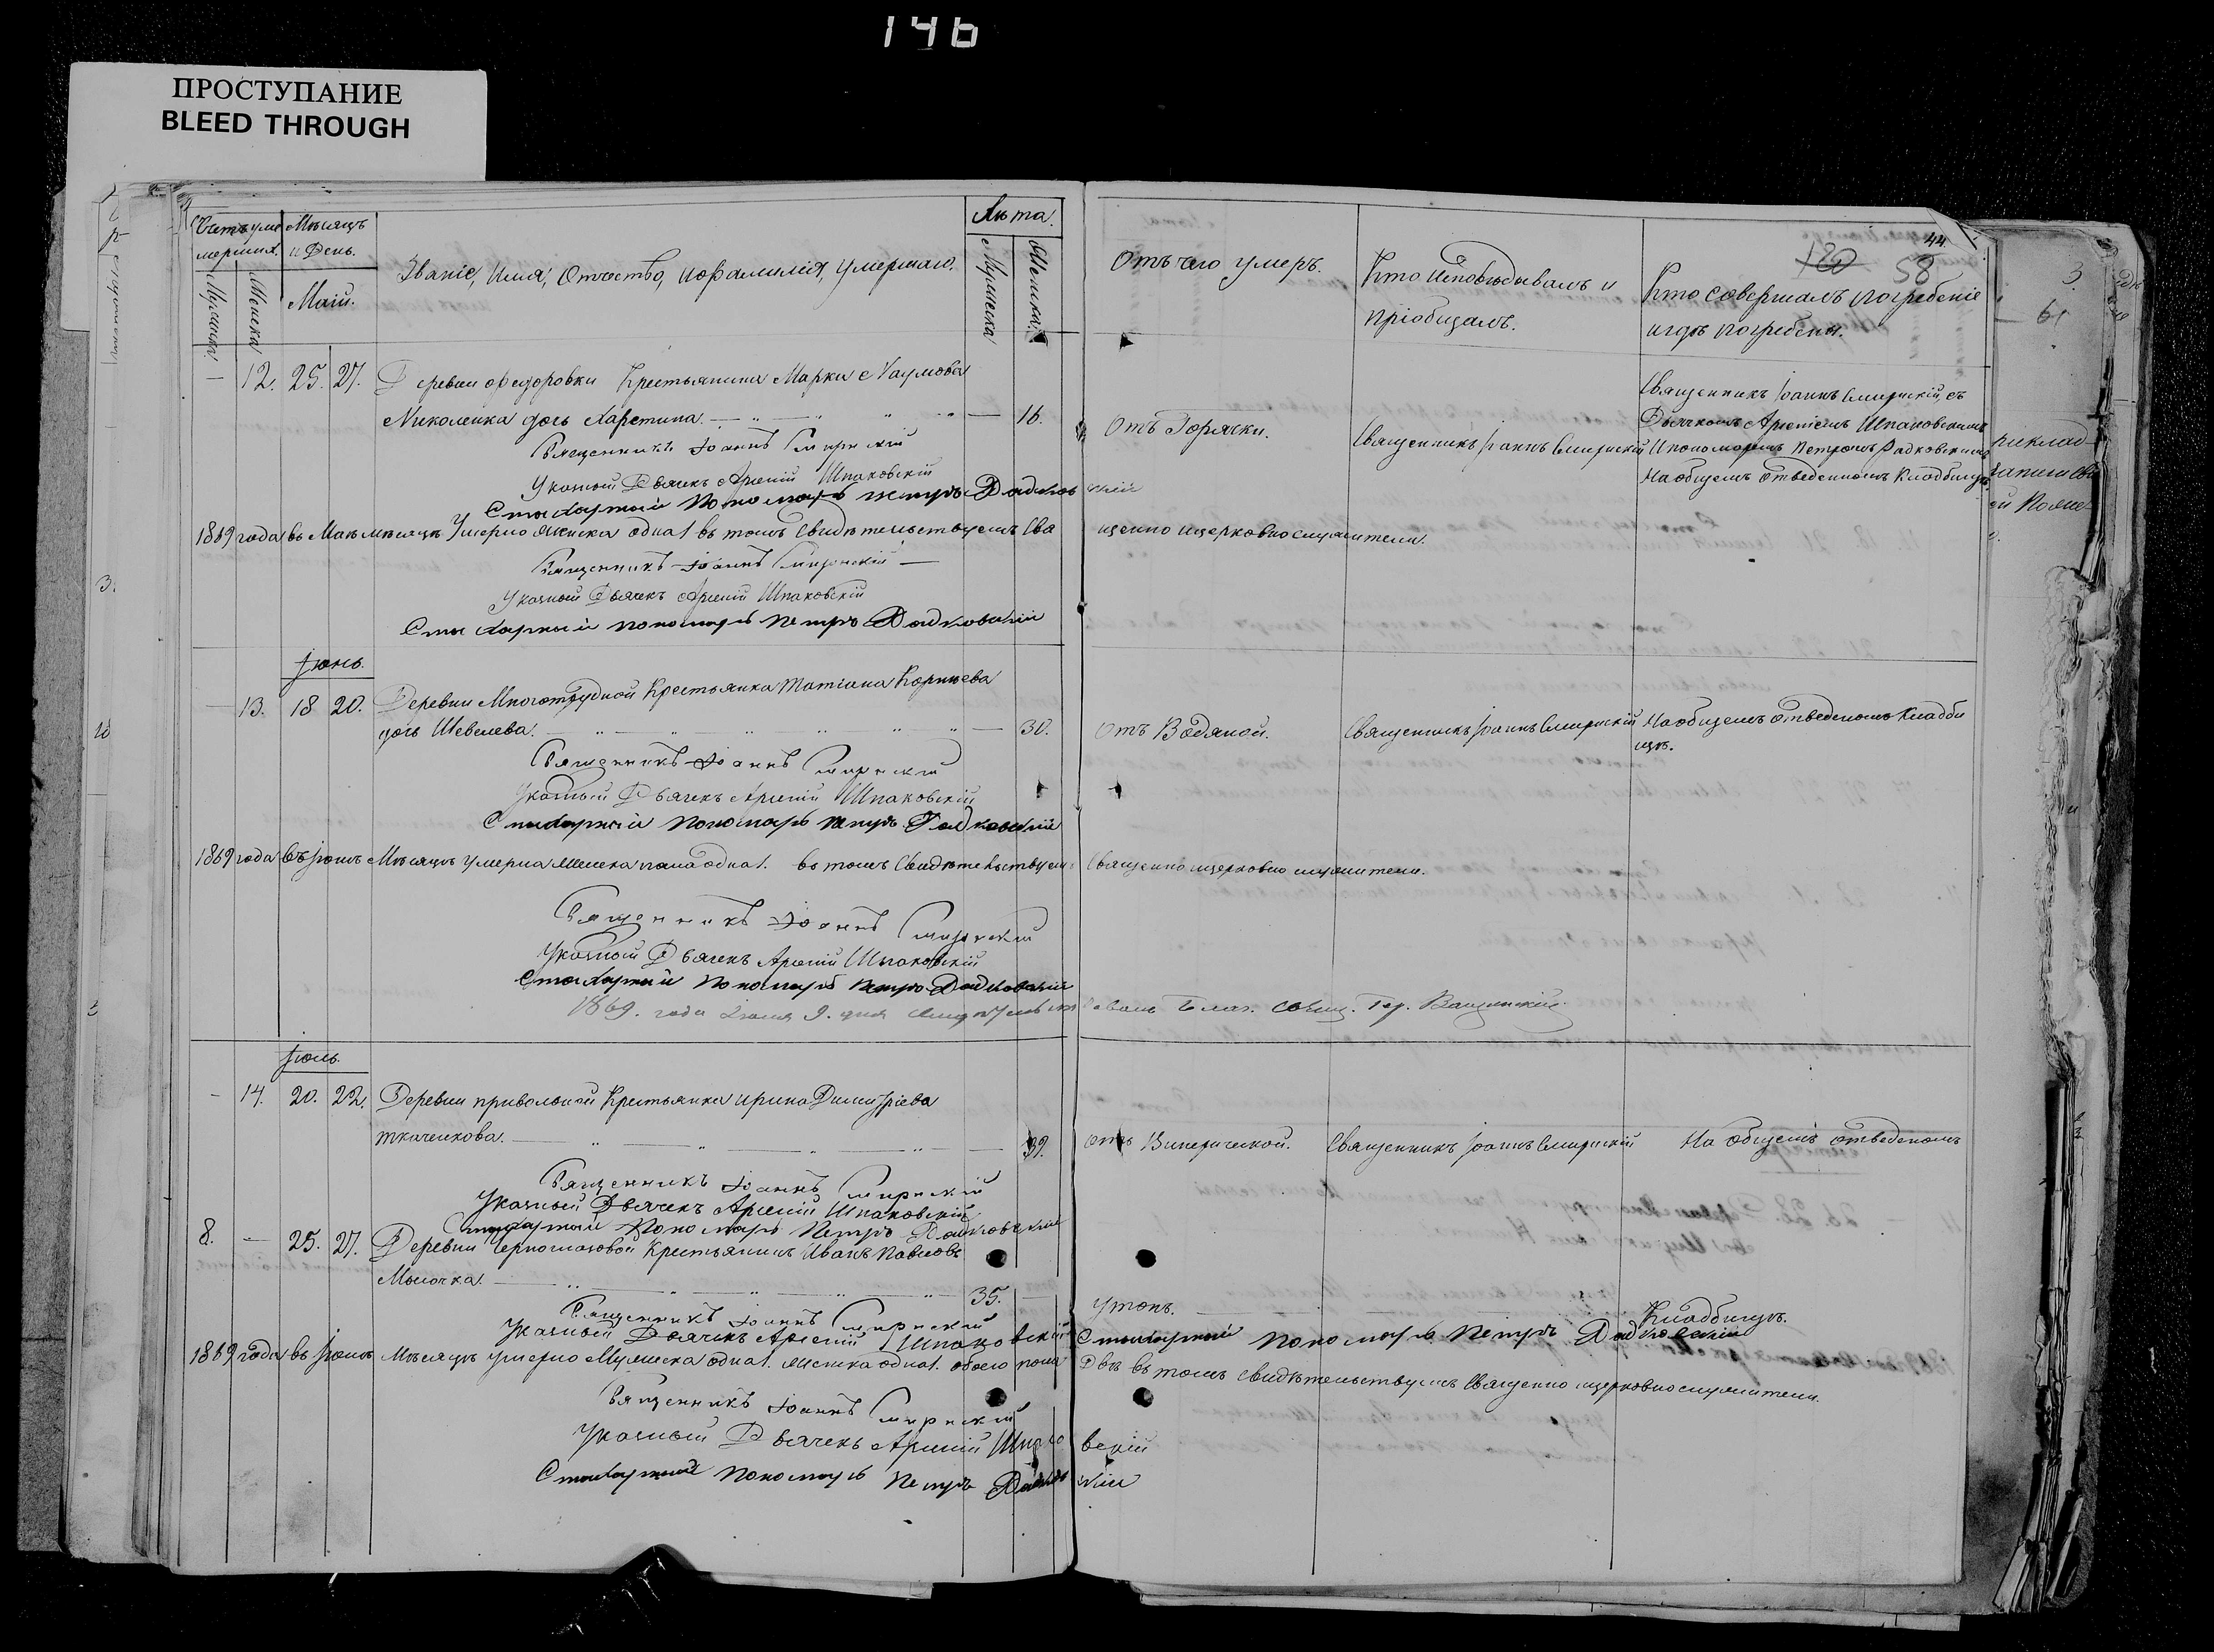 146
ПРОСТУПАНИЕ
BLEED THROUGH
44
180
58
Счетъ умершихъ.
Мужеска
Женска
Мѣсяцъ и День.
Маій.
Званіе, Имя, Отчество, и фамилія, умершаго.
Лѣта.
Мужеска
Женска.
Отъ чего умеръ.
Кто исповѣдывалъ и
пріобщалъ.
Кто совершалъ погребеніе
и гдѣ погребены.
— 12. 25. 27. Деревни Федоровки Крестьянина Марка Наумова
Николенка дочь Харетина. — 16.
Отъ Горячки.
Священникъ Іоаннъ Смирнскій
Священникъ Іоаннъ Смирнскій, съ
Дьячкомъ Арсеніемъ Шпаковскимъ
И пономаремъ Петромъ Радковскимъ
На общемъ отведенномъ Кладбищѣ
Священникъ Іоаннъ Смирнскій
Указный Дьячекъ Арсеній Шпаковскій
Стихарный Пономарь Петръ Радковскій
1869 года въ Маѣ мѣсяцѣ Умерло женска одна 1 въ томъ Свидѣтельствуемъ Священно и церковно служители.
Священникъ Іоаннъ Смирнскій
Указный Дьячекъ Арсеній Шпаковскій
Стихарный пономарь Петръ Радковскій
Іюнь.
— 13. 18 20. Деревни Многотрудной Крестьянка Татіана Корнѣева
дочь Шевелева. — 30.
Отъ Водяной.
Священникъ Іоаннъ Смирнскій
На общемъ отведеномъ Кладби
щѣ.
Священникъ Іоаннъ Смирнскій
Указный Дьячекъ Арсеній Шпаковскій
Стихарный Пономарь Петръ Радковскій
1869 года въ Іюнѣ Мѣсяцѣ умерла Женска пола одна 1. въ томъ Свидѣтельствуемъ Священно и церковно служители.
Священникъ Іоаннъ Смирнскій
Указный Дьячекъ Арсеній Шпаковскій
Стихарный Пономарь Петръ Радковскій
1869. года Іюля 9. дня Благ. Свящ.
Іюль.
— 14. 20. 22. Деревни привольной Крестьянка ирина Димитріева
ткаченкова. — 39.
отъ Винерической.
Священникъ Іоаннъ Смирнскій
На общемъ отведеномъ
Священникъ Іоаннъ Смирнскій
Указный Дьячекъ Арсеній Шпаковскій
Стихарный Пономарь Петръ Радковскій
8. — 25. 27. Деревни Черноглазовой Крестьянинъ Иванъ Павловъ
Мылочка. — 35. —
утопъ.
Кладбищѣ.
Священникъ Іоаннъ Смирнскій
Указный Дьячекъ Арсеній Шпаковскій
Стихарный Пономарь Петръ Радковскій
1869 года въ Іюлѣ Мѣсяцѣ умерло Мужеска одна 1. женска одна 1. обоего пола Двѣ въ томъ свидѣтельствуемъ Священно и церковно служители.
Священникъ Іоаннъ Смирнскій
Указный Дьячекъ Арсеній Шпаковскій
Стихарный Пономарь Петръ Радковскій
61